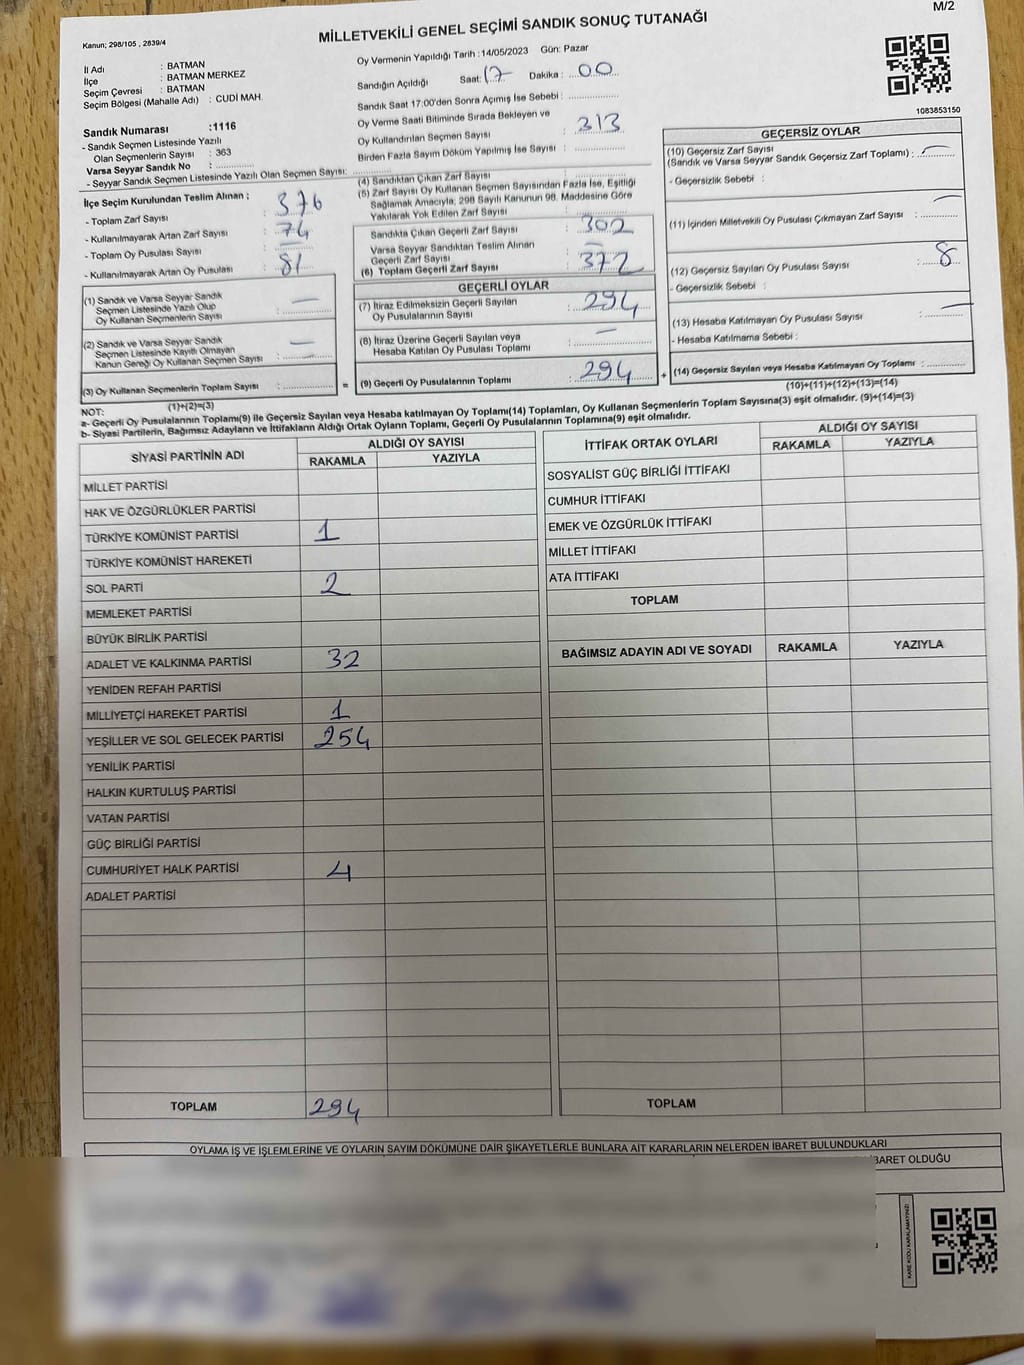 M/2
Kanun; 298/105 , 2839/4
MİLLETVEKİLİ GENEL SEÇİMİ SANDIK SONUÇ TUTANAĞI
İl Adı : BATMAN
İlçe : BATMAN MERKEZ
Seçim Çevresi : BATMAN
Seçim Bölgesi (Mahalle Adı) : CUDİ MAH.
Sandık Numarası :1116
- Sandık Seçmen Listesinde Yazılı
Olan Seçmenlerin Sayısı : 363
Varsa Seyyar Sandık No :
- Seyyar Sandık Seçmen Listesinde Yazılı Olan Seçmen Sayısı:
Oy Vermenin Yapıldığı Tarih : 14/05/2023 Gün: Pazar
Sandığın Açıldığı Saat: 17 Dakika : 00
Sandık Saat 17:00'den Sonra Açımış İse Sebebi :
Oy Verme Saati Bitiminde Sırada Bekleyen ve
Oy Kullandırılan Seçmen Sayısı : 313
Birden Fazla Sayım Döküm Yapılmış İse Sayısı :
1083853150
İlçe Seçim Kurulundan Teslim Alınan ;
- Toplam Zarf Sayısı : 376
- Kullanılmayarak Artan Zarf Sayısı : 74
- Toplam Oy Pusulası Sayısı :
- Kullanılmayarak Artan Oy Pusulası : 81
(1) Sandık ve Varsa Seyyar Sandık
Seçmen Listesinde Yazılı Olup
Oy Kullanan Seçmenlerin Sayısı : —
(2) Sandık ve Varsa Seyyar Sandık
Seçmen Listesinde Kayıtlı Olmayan
Kanun Gereği Oy Kullanan Seçmen Sayısı : —
(3) Oy Kullanan Seçmenlerin Toplam Sayısı : =
(1)+(2)=(3)
(4) Sandıktan Çıkan Zarf Sayısı :
(5) Zarf Sayısı Oy Kullanan Seçmen Sayısından Fazla İse, Eşitliği
Sağlamak Amacıyla; 298 Sayılı Kanunun 98. Maddesine Göre
Yakılarak Yok Edilen Zarf Sayısı :
Sandıkta Çıkan Geçerli Zarf Sayısı : 302
Varsa Seyyar Sandıktan Teslim Alınan
Geçerli Zarf Sayısı : —
(6) Toplam Geçerli Zarf Sayısı : 372
GEÇERLİ OYLAR
(7) İtiraz Edilmeksizin Geçerli Sayılan
Oy Pusulalarının Sayısı : 294
(8) İtiraz Üzerine Geçerli Sayılan veya
Hesaba Katılan Oy Pusulası Toplamı : —
(9) Geçerli Oy Pusulalarının Toplamı : 294 +
GEÇERSİZ OYLAR
(10) Geçersiz Zarf Sayısı
(Sandık ve Varsa Seyyar Sandık Geçersiz Zarf Toplamı) : —
- Geçersizlik Sebebi :
(11) İçinden Milletvekili Oy Pusulası Çıkmayan Zarf Sayısı : —
(12) Geçersiz Sayılan Oy Pusulası Sayısı : 8
- Geçersizlik Sebebi :
(13) Hesaba Katılmayan Oy Pusulası Sayısı : —
- Hesaba Katılmama Sebebi :
(14) Geçersiz Sayılan veya Hesaba Katılmayan Oy Toplamı :
(10)+(11)+(12)+(13)=(14)
NOT:
a- Geçerli Oy Pusulalarının Toplamı(9) ile Geçersiz Sayılan veya Hesaba katılmayan Oy Toplamı(14) Toplamları, Oy Kullanan Seçmenlerin Toplam Sayısına(3) eşit olmalıdır. (9)+(14)=(3)
b- Siyasi Partilerin, Bağımsız Adayların ve İttifakların Aldığı Ortak Oyların Toplamı, Geçerli Oy Pusulalarının Toplamına(9) eşit olmalıdır.
SİYASİ PARTİNİN ADI ALDIĞI OY SAYISI
RAKAMLA YAZIYLA
MİLLET PARTİSİ
HAK VE ÖZGÜRLÜKLER PARTİSİ
TÜRKİYE KOMÜNİST PARTİSİ 1
TÜRKİYE KOMÜNİST HAREKETİ
SOL PARTİ 2
MEMLEKET PARTİSİ
BÜYÜK BİRLİK PARTİSİ
ADALET VE KALKINMA PARTİSİ 32
YENİDEN REFAH PARTİSİ
MİLLİYETÇİ HAREKET PARTİSİ 1
YEŞİLLER VE SOL GELECEK PARTİSİ 254
YENİLİK PARTİSİ
HALKIN KURTULUŞ PARTİSİ
VATAN PARTİSİ
GÜÇ BİRLİĞİ PARTİSİ
CUMHURİYET HALK PARTİSİ 4
ADALET PARTİSİ
TOPLAM 294
İTTİFAK ORTAK OYLARI ALDIĞI OY SAYISI
RAKAMLA YAZIYLA
SOSYALİST GÜÇ BİRLİĞİ İTTİFAKI
CUMHUR İTTİFAKI
EMEK VE ÖZGÜRLÜK İTTİFAKI
MİLLET İTTİFAKI
ATA İTTİFAKI
TOPLAM
BAĞIMSIZ ADAYIN ADI VE SOYADI RAKAMLA YAZIYLA
TOPLAM
OYLAMA İŞ VE İŞLEMLERİNE VE OYLARIN SAYIM DÖKÜMÜNE DAİR ŞİKAYETLERLE BUNLARA AİT KARARLARIN NELERDEN İBARET BULUNDUKLARI
İBARET OLDUĞU
KARE KODU KARALAMAYINIZ!